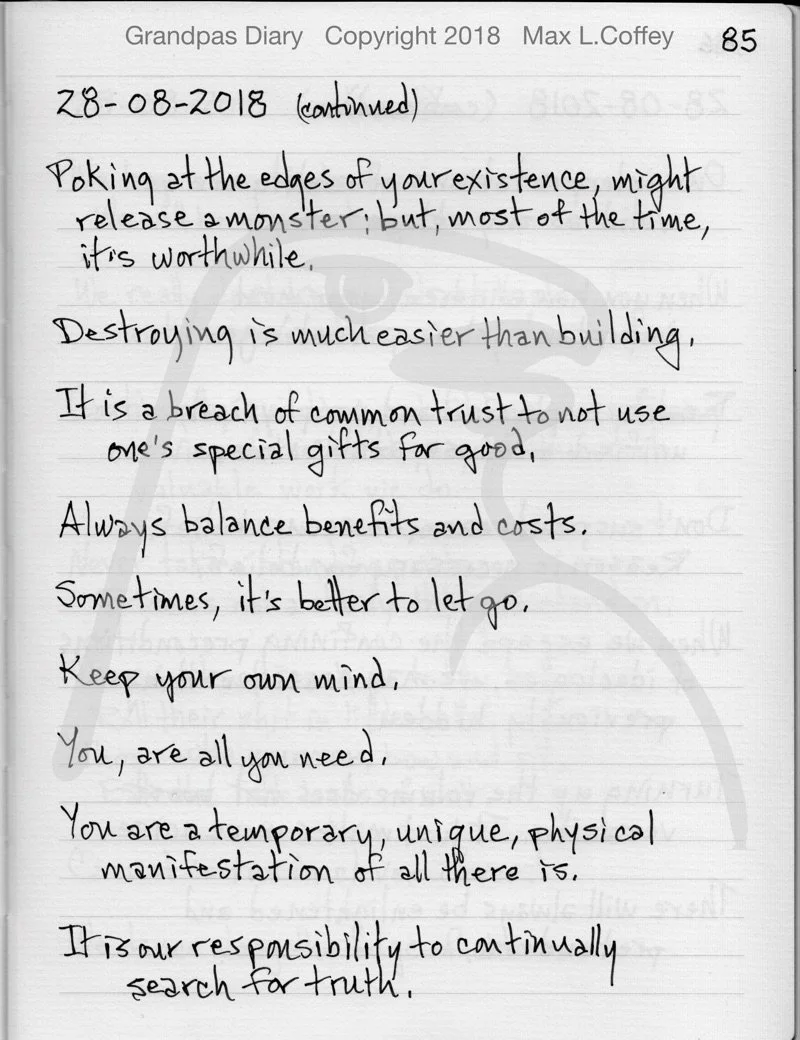 Grandpas Diary Copyright 2018 Max L.Coffey 85
28-08-2018 (continued)
Poking at the edges of your existence, might
release a monster; but, most of the time,
it's worthwhile.
Destroying is much easier than building.
It is a breach of common trust to not use
one's special gifts for good.
Always balance benefits and costs.
Sometimes, it's better to let go.
Keep your own mind.
You, are all you need.
You are a temporary, unique, physical
manifestation of all there is.
It is our responsibility to continually
search for truth.